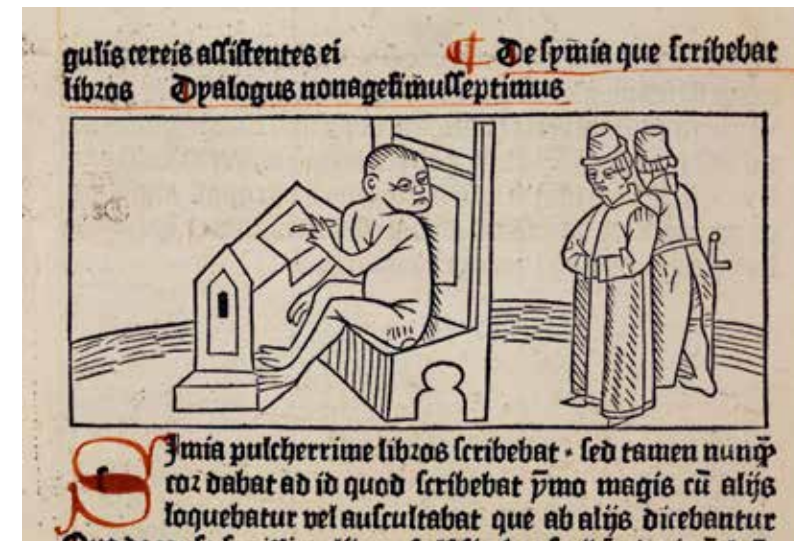 gulis cereis assistentes ei ¶ De sym̄ia que scribebat
libros Dyalogus nonagesimusseptimus
SImia pulcherrime libros scribebat · sed tamen nunq̄
cor dabat ad id quod scribebat p̄mo magis cū alijs
loquebatur vel auscultabat que ab alijs dicebantur